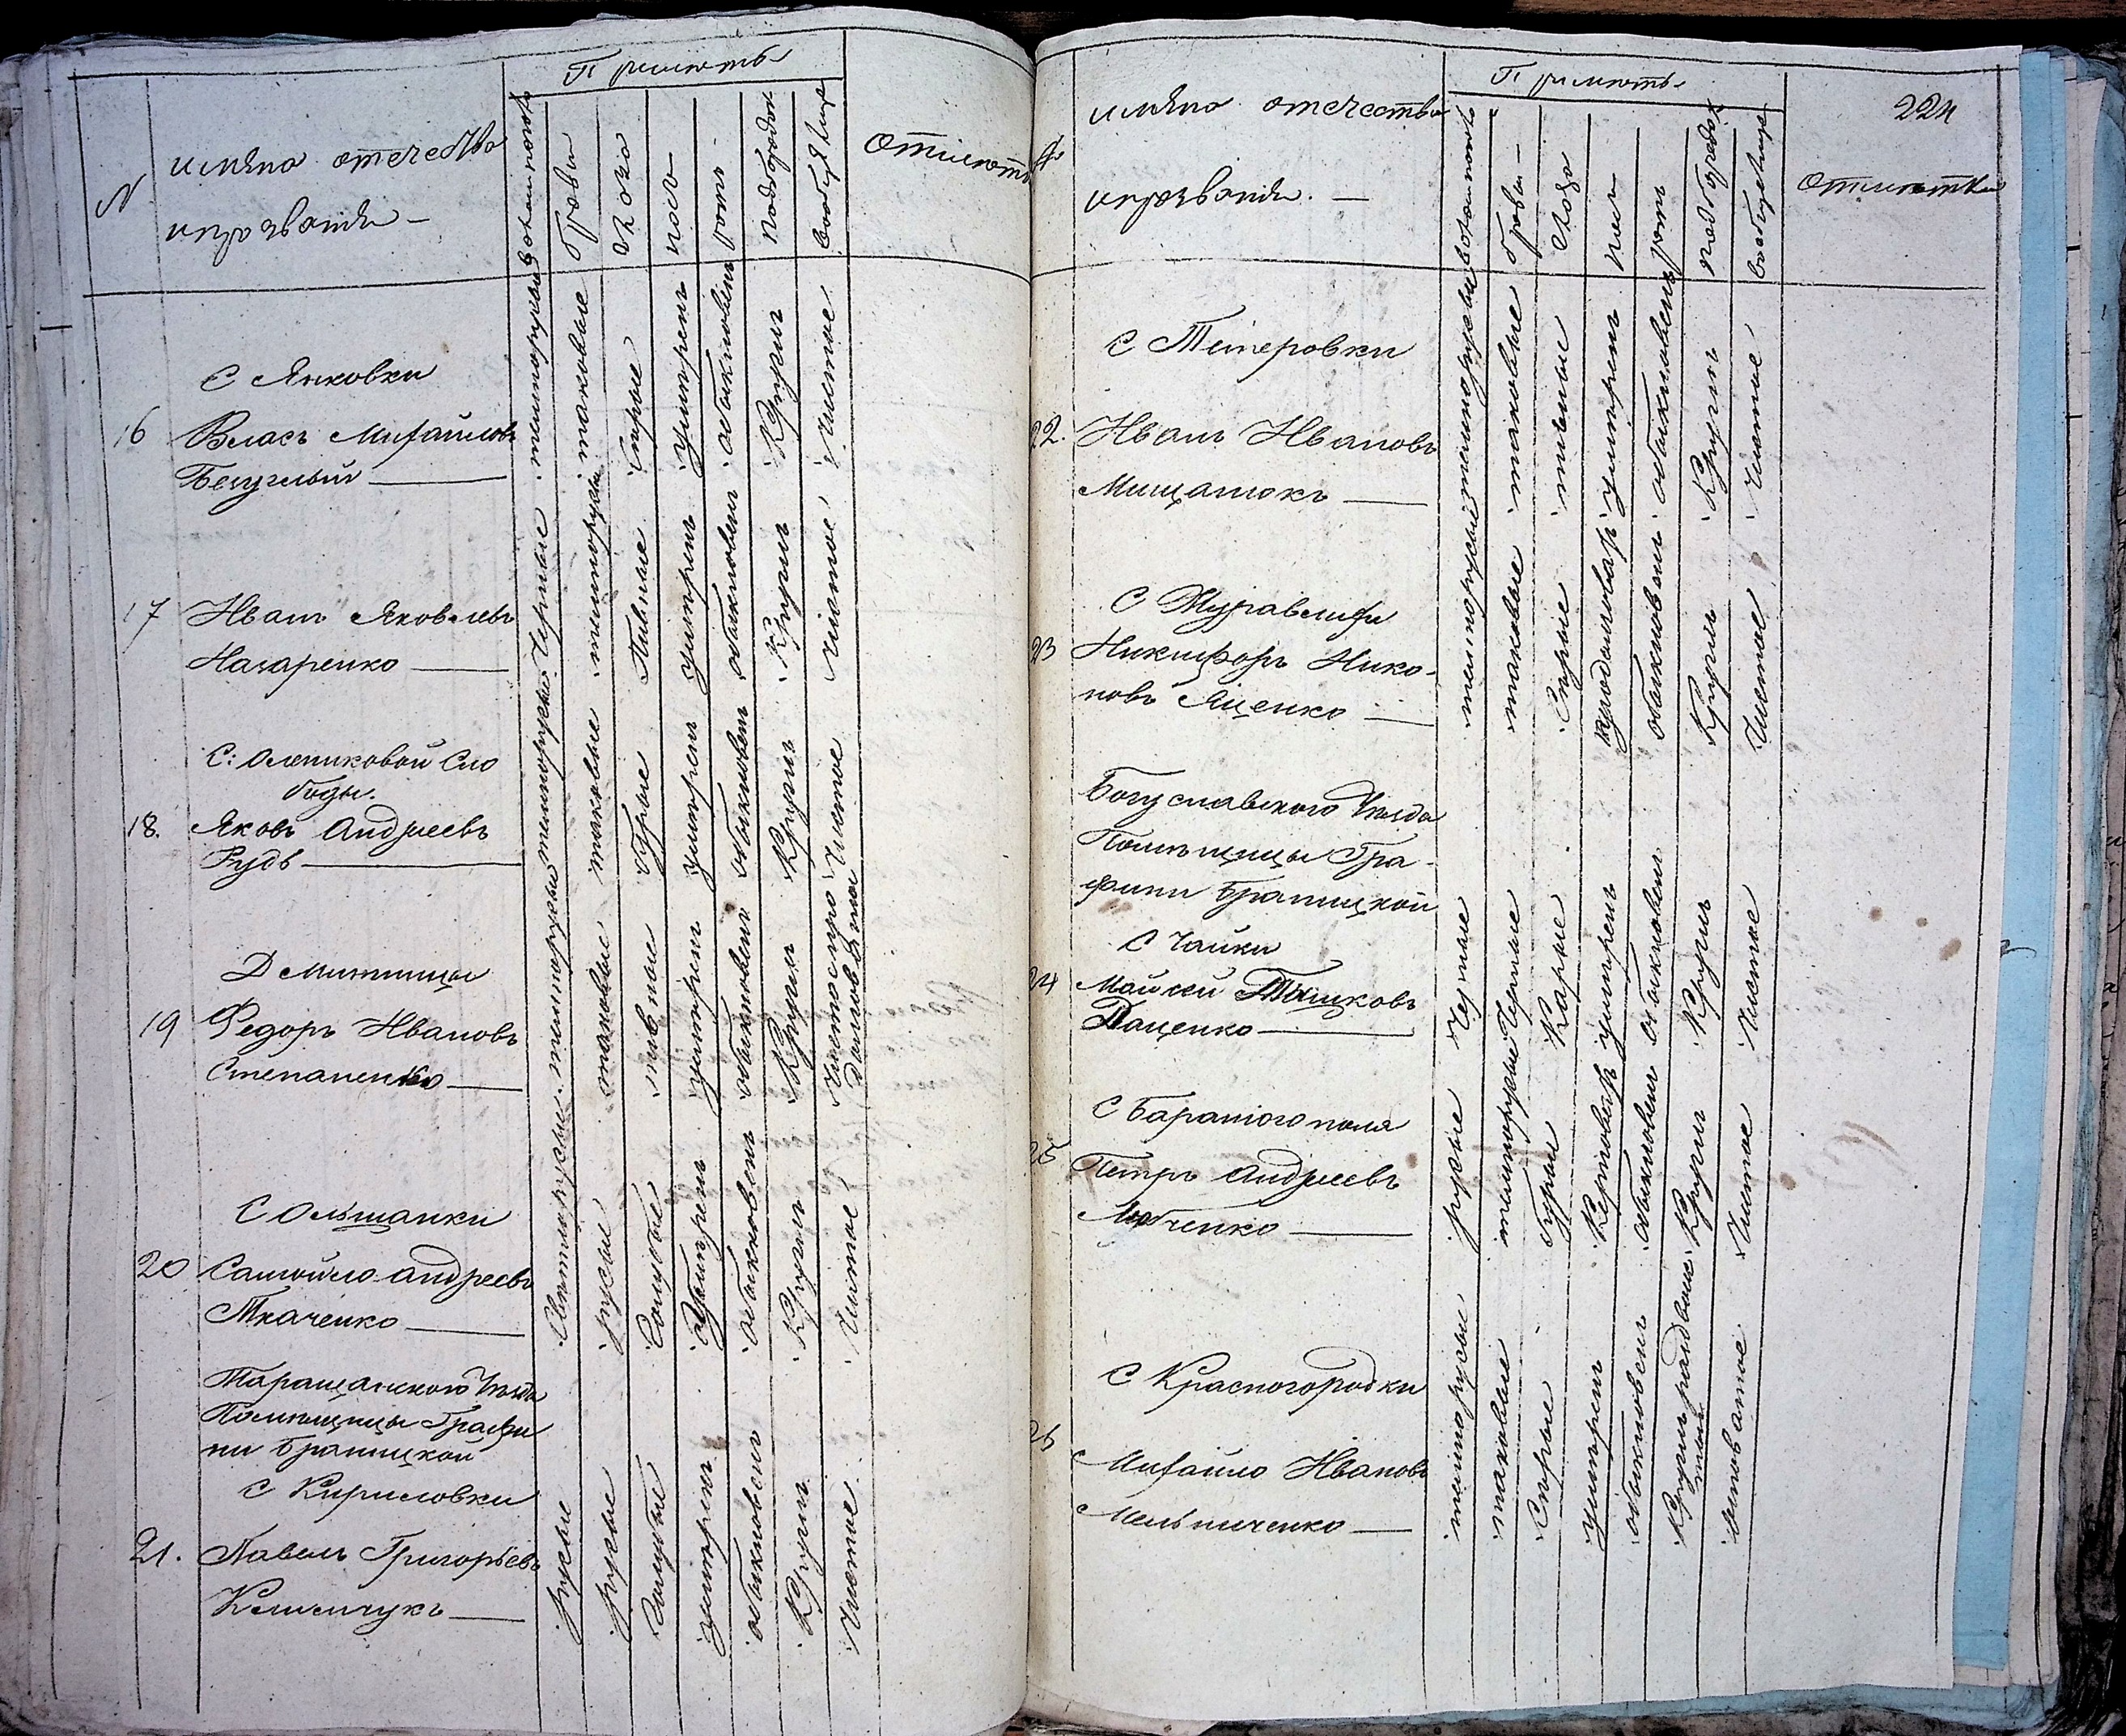 N
имяна отечества
и прозвания
Приметы
волоса на голове
брови
глаза
нос
рот
подбородок
вообще лице
Отметки
С Янковки
16 Власъ Михайловъ
Безуглый
темнорусые
таковые
Серые
умерен
обыкновен
Кругл
чистое
17 Иванъ Яковлевъ
Назаренко
Черные
темнорусые
Пивные
умерен
обыкновен
Кругл
чистое
С: Олейниковой Сло
боды.
18. Яковъ Андреевъ
Рудь
темнорусые
таковые
Серые
умерен
обыкновен
Кругл
Чистое
Д
19 Федоръ Ивановъ
Степаненко
темнорусые
таковые
пивные
умерен
обыкновен
Кругл
С Ольшанки
20 Самойло Андреевъ
Ткаченко
Светлорусые
русые
Голубые
Умерен
обыкновен
Кругл
Чистое
Таращанского Уезда
Помещицы Графи
ни Браницкой
С Кириловки
21. Павелъ Григорьевъ
Климчукъ
русые
русые
Голубые
умерен
обыкновен
Кругл
Чистое
224
№
имяна отечества
и прозвания.
Приметы
волоса на голове
брови
глаза
нос
рот
подбородок
вообще лице
Отметки
С Тетеровки
22. Иванъ Ивановъ
Мищанюкъ
темнорусые
таковые
пивные
умерен
обыкновен
Кругл
Чистое
С Журавлихи
23 Никифоръ Нико-
новъ Яценко
темнорусые
таковые
Серые
продолговат
обыкновен
Кругл
Чистое
Богуславского Уезда
Помещицы Гра-
фини Браницкой
С Чайки
24 Мойсей Тышковъ
Даценко
Черные
Черные
Карые
умерен
обыкновен
Кругл
Чистое
С Бараньего поля
25 Петръ Андреевъ
Любченко
русые
темнорусые
бурые
обыкновен
Кругл
Чистое
С Красногородки
26
Михайло Ивановъ
Мельниченко
темнорусые
таковые
Серые
умерен
обыкновен
Кругл